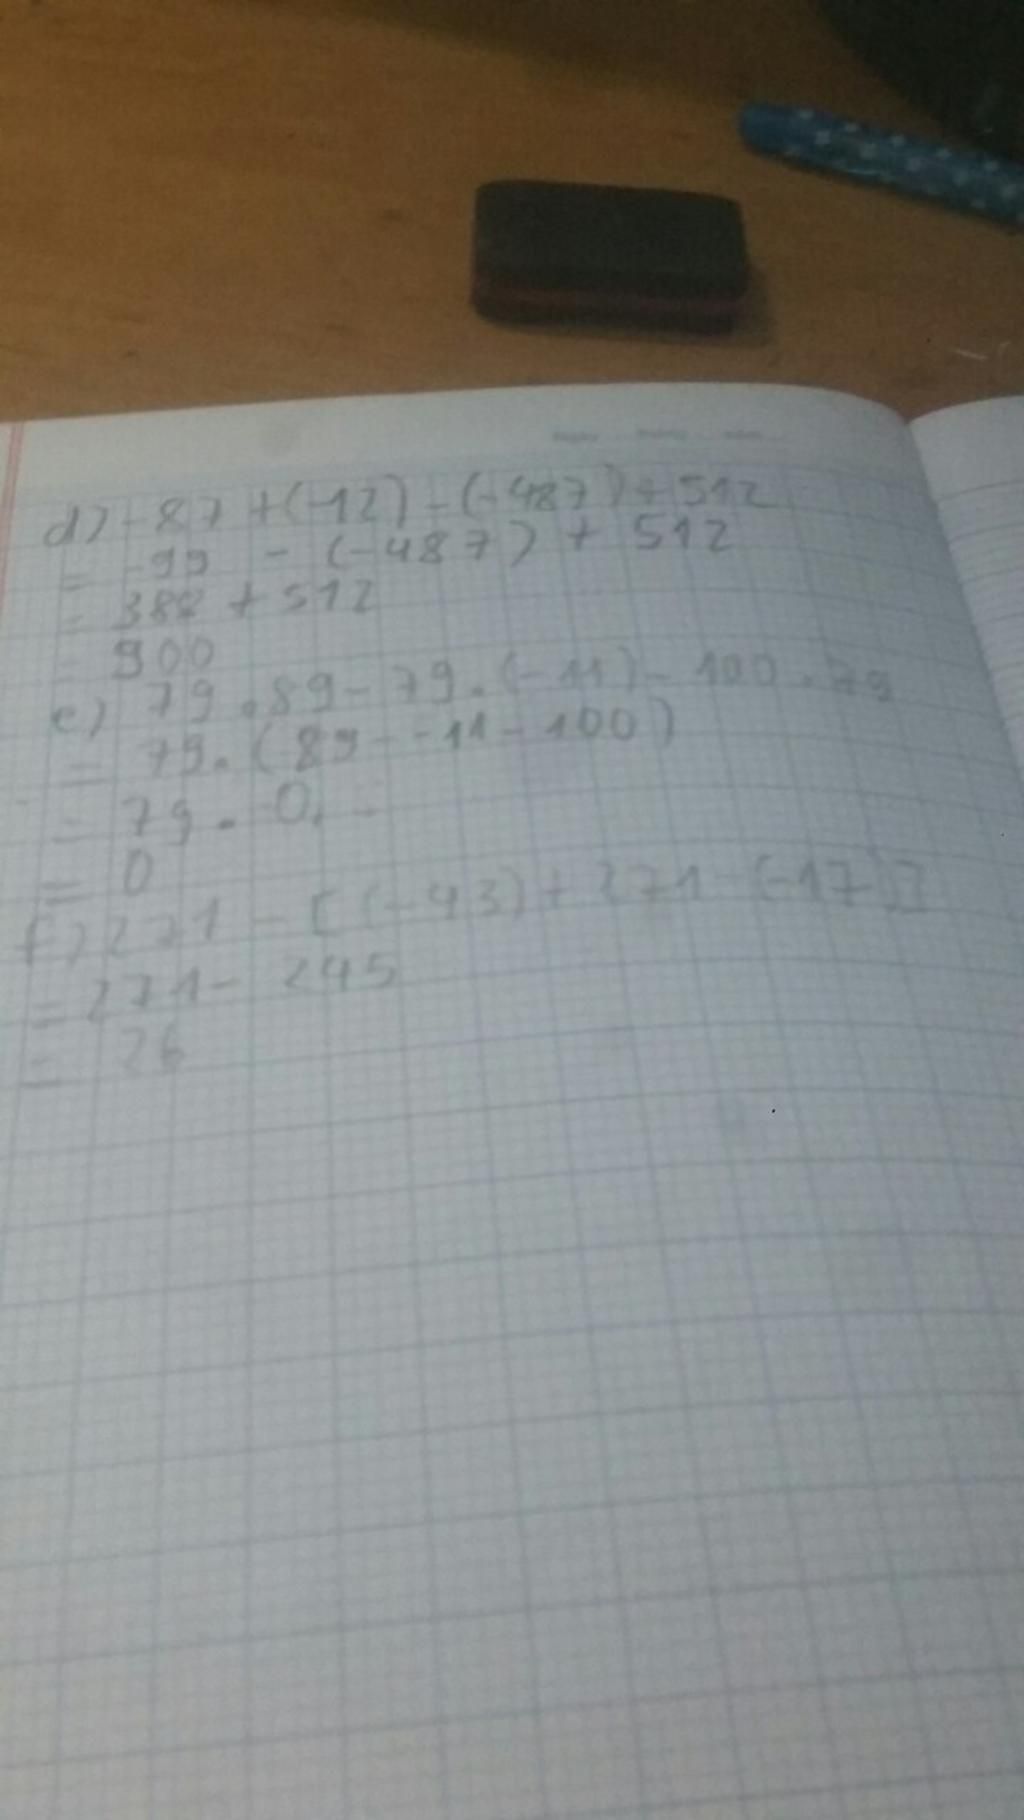 d) -87 + (-12) - (-487) + 512
= -99 - (-487) + 512
= 388 + 512
= 900
e) 79 . 89 - 79 . (-11) - 100 . 79
= 79 . (89 - -11 - 100)
= 79 . 0
= 0
f) 271 - [(-43) + 271 - (-17)]
= 271 - 245
= 26